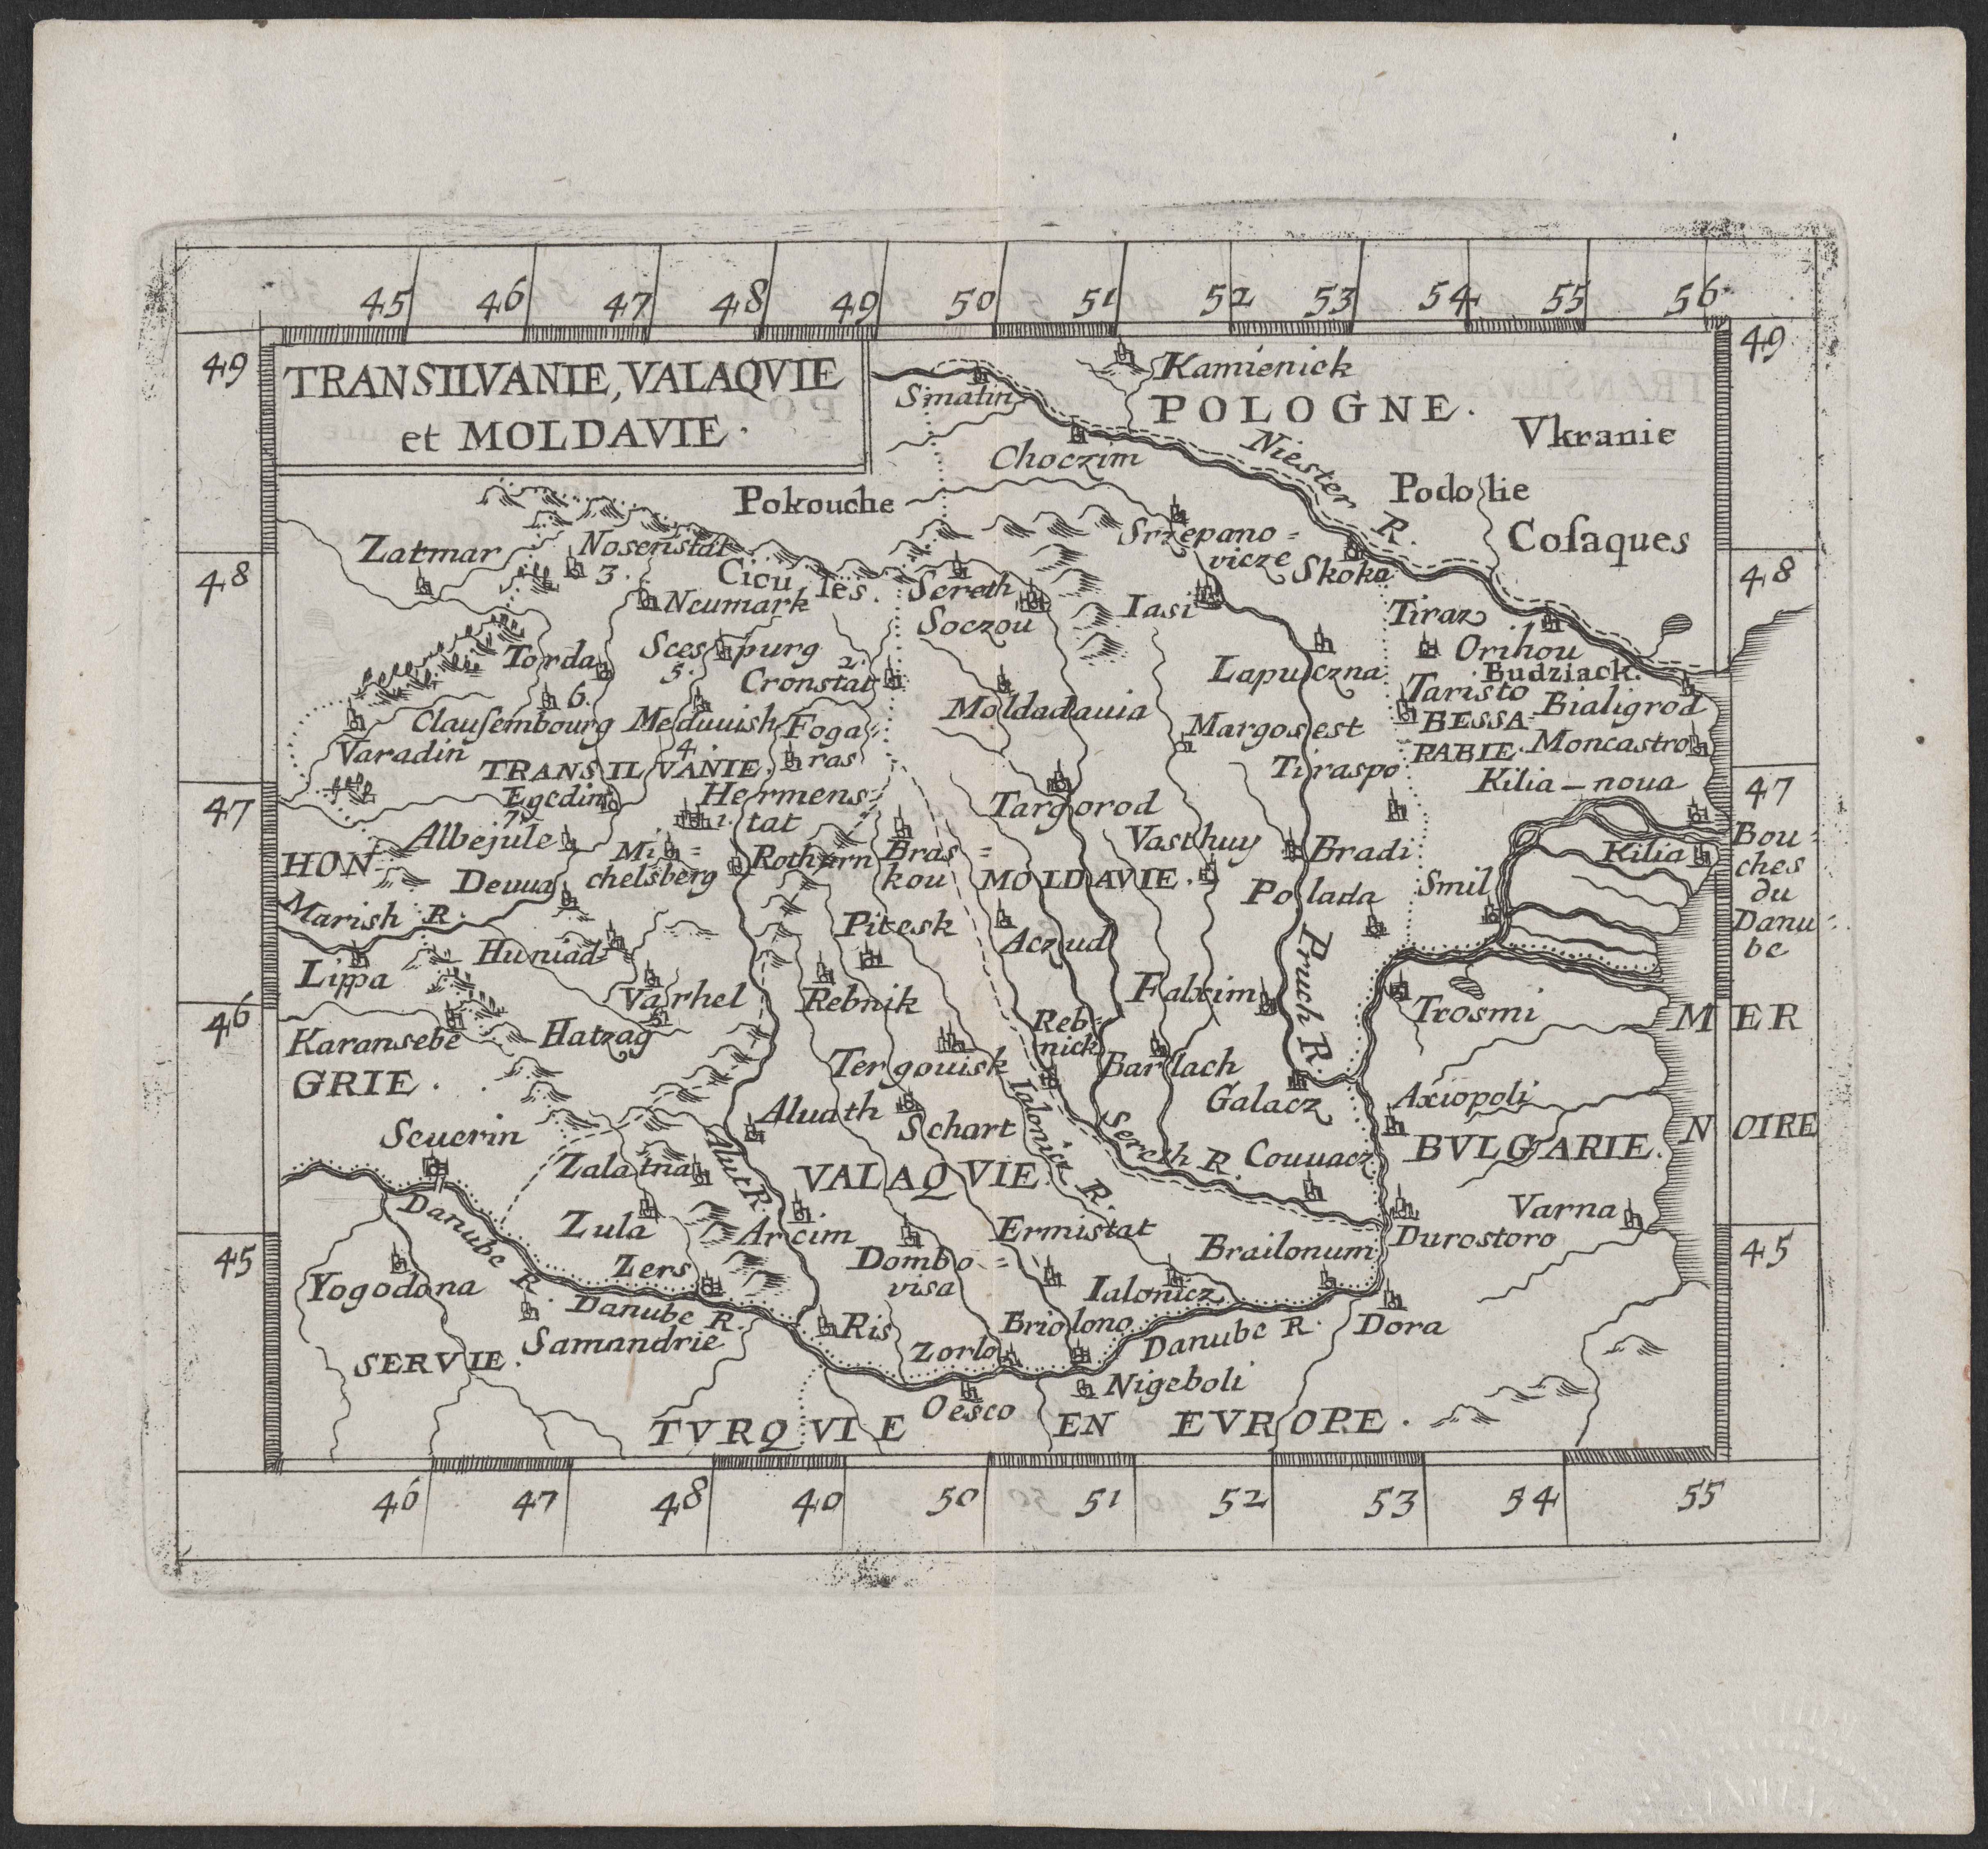 45 46 47 48 49 50 51 52 53 54 55 56
49
49
TRANSILVANIE, VALAQVIE
et MOLDAVIE.
Smatin
Kamienick
POLOGNE.
Vkranie
Choczim
Niester R.
Pokouche
Podolie
Cosaques
Srzepano=
vicze
Skoka
Zatmar
Nosenstat
3.
Cicu les.
Neumark
Sereth
Soczou
Iasi
Tiraz
Orihou
Budziack.
48
48
Torda
Scespurg
5.
2.
Cronstat
Lapuczna
Taristo
Bialigrod
6.
Clausembourg
Meduuish
4.
Foga=
ras
Moldadauia
Margosest
BESSA=
RABIE.
Moncastro
Varadin
TRANSILVANIE.
Tiraspo
Kilia-noua
Egedin
7.
Hermens=
1.
tat
Targorod
47
47
Albejule
Mi=
chelsberg
Rothurn
Bras=
kou
Vasthuy
Bradi
Kilia
Bou=
ches
du
Danu=
be
HON=
Deuua
MOLDAVIE.
Polada
Smil
Marish R.
Huniad
Pitesk
Aczud
Lippa
Varhel
Rebnik
Falxim
Pruch R.
Trosmi
46
46
Karansebe
Hatzag
Reb=
nick
MER
GRIE.
Tergouisk
Barlach
Ialonicz R.
Galacz
Axiopoli
Seuerin
Aluath
Schart
Sereth R.
NOIRE
Zalatna
Alut R.
VALAQVIE.
Couuacz
BVLGARIE.
Danube R.
Zula
Arcim
Ermistat
Varna
Durostoro
Brailonum
45
45
Zers
Dombo=
visa
Yogodona
Danube R.
Ialonicz
Samandrie
Ris
Briolono
Danube R.
Dora
SERVIE.
Zorlo
Nigeboli
Oesco
TVRQVIE EN EVROPE.
46 47 48 40 50 51 52 53 54 55